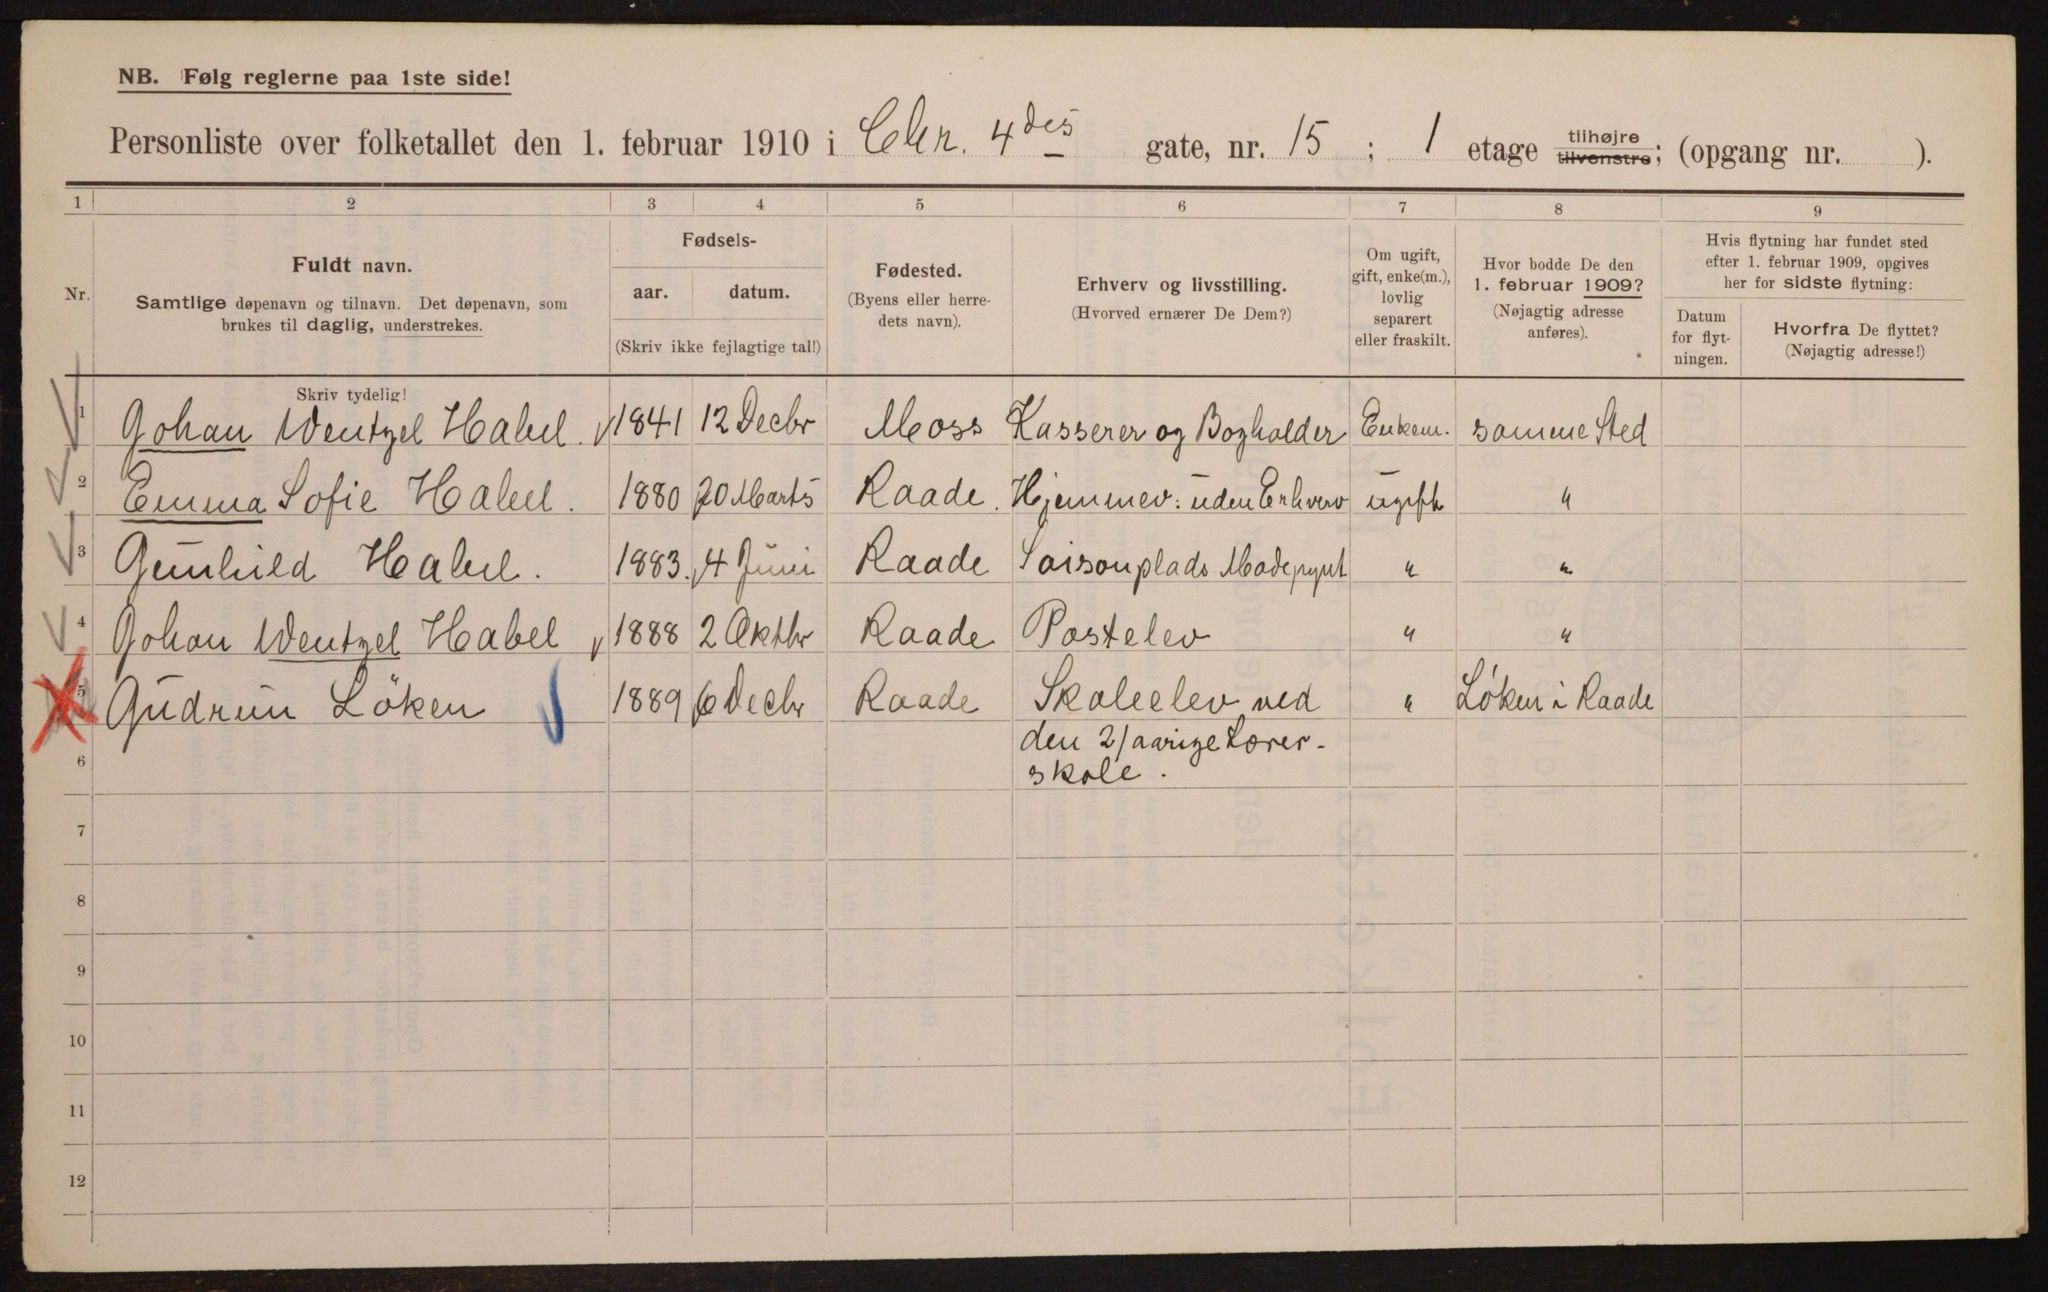 NB. Følg reglerne paa 1ste side!
Personliste over folketallet den 1. februar 1910 i Chr. 4des gate, nr. 15 ; 1 etage tilhøjre tilvenstre; (opgang nr. ).
1 2 3 4 5 6 7 8 9
Nr.
Fuldt navn.
Samtlige døpenavn og tilnavn. Det døpenavn, som
brukes til daglig, understrekes.
Skriv tydelig!
Fødsels-
aar. datum.
(Skriv ikke fejlagtige tal!)
Fødested.
(Byens eller herre-
dets navn).
Erhverv og livsstilling.
(Hvorved ernærer De Dem?)
Om ugift,
gift, enke(m.),
lovlig
separert
eller fraskilt.
Hvor bodde De den
1. februar 1909?
(Nøjagtig adresse
anføres).
Hvis flytning har fundet sted
efter 1. februar 1909, opgives
her for sidste flytning:
Datum
for flyt-
ningen.
Hvorfra De flyttet?
(Nøjagtig adresse!)
1 Johan Wentzel Habel. 1841 12 Decbr Moss Kasserer og Bogholder Enkem. samme Sted
2 Emma Sofie Habel. 1880 20 Marts Raade. Hjemmev: uden Erhverv ugift "
3 Gunhild Habel. 1883. 4 Juni Raade Saisonplads Modepynt " "
4 Johan Wentzel Habel 1888 2 Oktbr Raade Postelev " "
5 Gudrun Löken 1889 6 Decbr Raade Skoleelev ved " Løken i Raade
den 2/aarige Lærer-
6 skole.
7
8
9
10
11
12